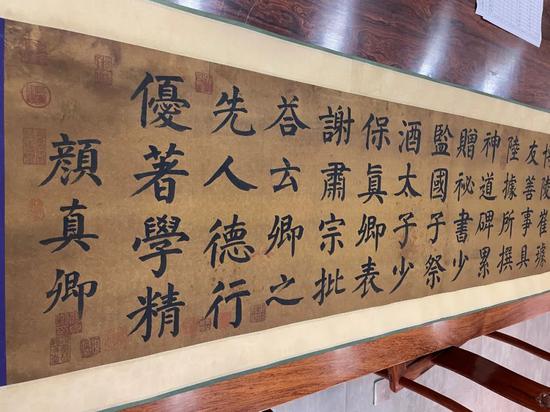 友善事具
陸據所撰
神道碑累
贈祕書少
監國子祭
酒太子少
保真卿表
謝肅宗批
荅云卿之
先人德行
優著學精
顏真卿